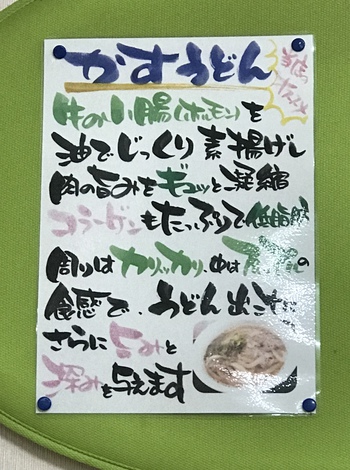 かすうどん
当店の
オススメ
牛の小腸(ホルモン)を
油でじっくり素揚げし
肉の旨みをギュッと凝縮
コラーゲンもたっぷりで低脂肪
周りはカリッカリ、中はプルプルの
食感で、うどん出こだに
さらに うみと
深みを与えます